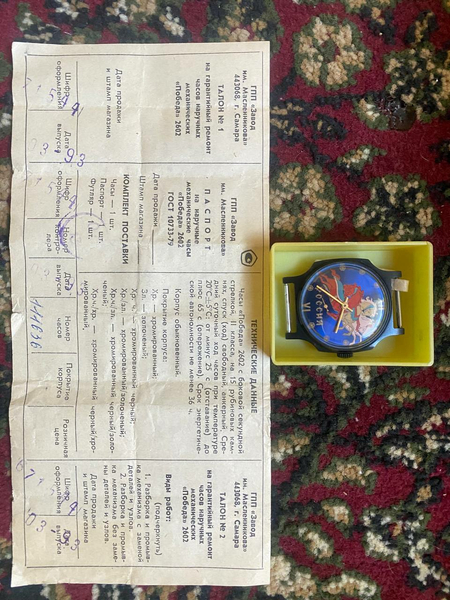 ГПП «Завод
им. Масленникова»
443068, г. Самара
ТАЛОН № 1
на гарантийный ремонт
часов наручных
механических
«Победа» 2602
Дата продажи
и штамп магазина
Шифр
оформления
Дата
выпуска
ГПП «Завод
им. Масленникова»
ПАСПОРТ
на наручные
механические часы
«Победа» 2602
ГОСТ 10733-79
Дата продажи
Штамп магазина
КОМПЛЕКТ ПОСТАВКИ
Часы — 1 шт.
Паспорт — 1 шт.
Футляр — 1 шт.
Шифр
оформления
Номер
ТЕХНИЧЕСКИЕ ДАННЫЕ
Часы «Победа» 2602 с боковой секундной
стрелкой, II класса, на 15 рубиновых кам-
нях, спуск (ход) свободный анкерный. Сре-
дний суточный ход часов при температуре
20°С±5°С от минус 25 с (отставание) до
плюс 65 с (опережение). Срок энергетиче-
ской автономности не менее 36 ч.
Корпус обыкновенный.
Покрытие корпуса:
Хр. — хромированный;
Зл. — золоченый;
Хр. ч. — хромированный черный;
Хр./зл. — хромированный/золоченый;
Хр. ч./зл. — хромированный черный/золо-
ченый;
Хр. ч./хр. — хромированный черный/хро-
мированный.
Дата
выпуска
Номер
часов
Покрытие
корпуса
Розничная
цена
ГПП «Завод
им. Масленникова»
443068, г. Самара
ТАЛОН № 2
на гарантийный ремонт
часов наручных
механических
«Победа» 2602
Виды работ:
(подчеркнуть)
1. Разборка и промыв-
ка механизма с заменой
деталей и узлов.
2. Разборка и промыв-
ка механизма без заме-
ны деталей и узлов.
Дата продажи
и штамп магазина
Шифр
оформления
Дата
выпуска
РОССИЯ
VI